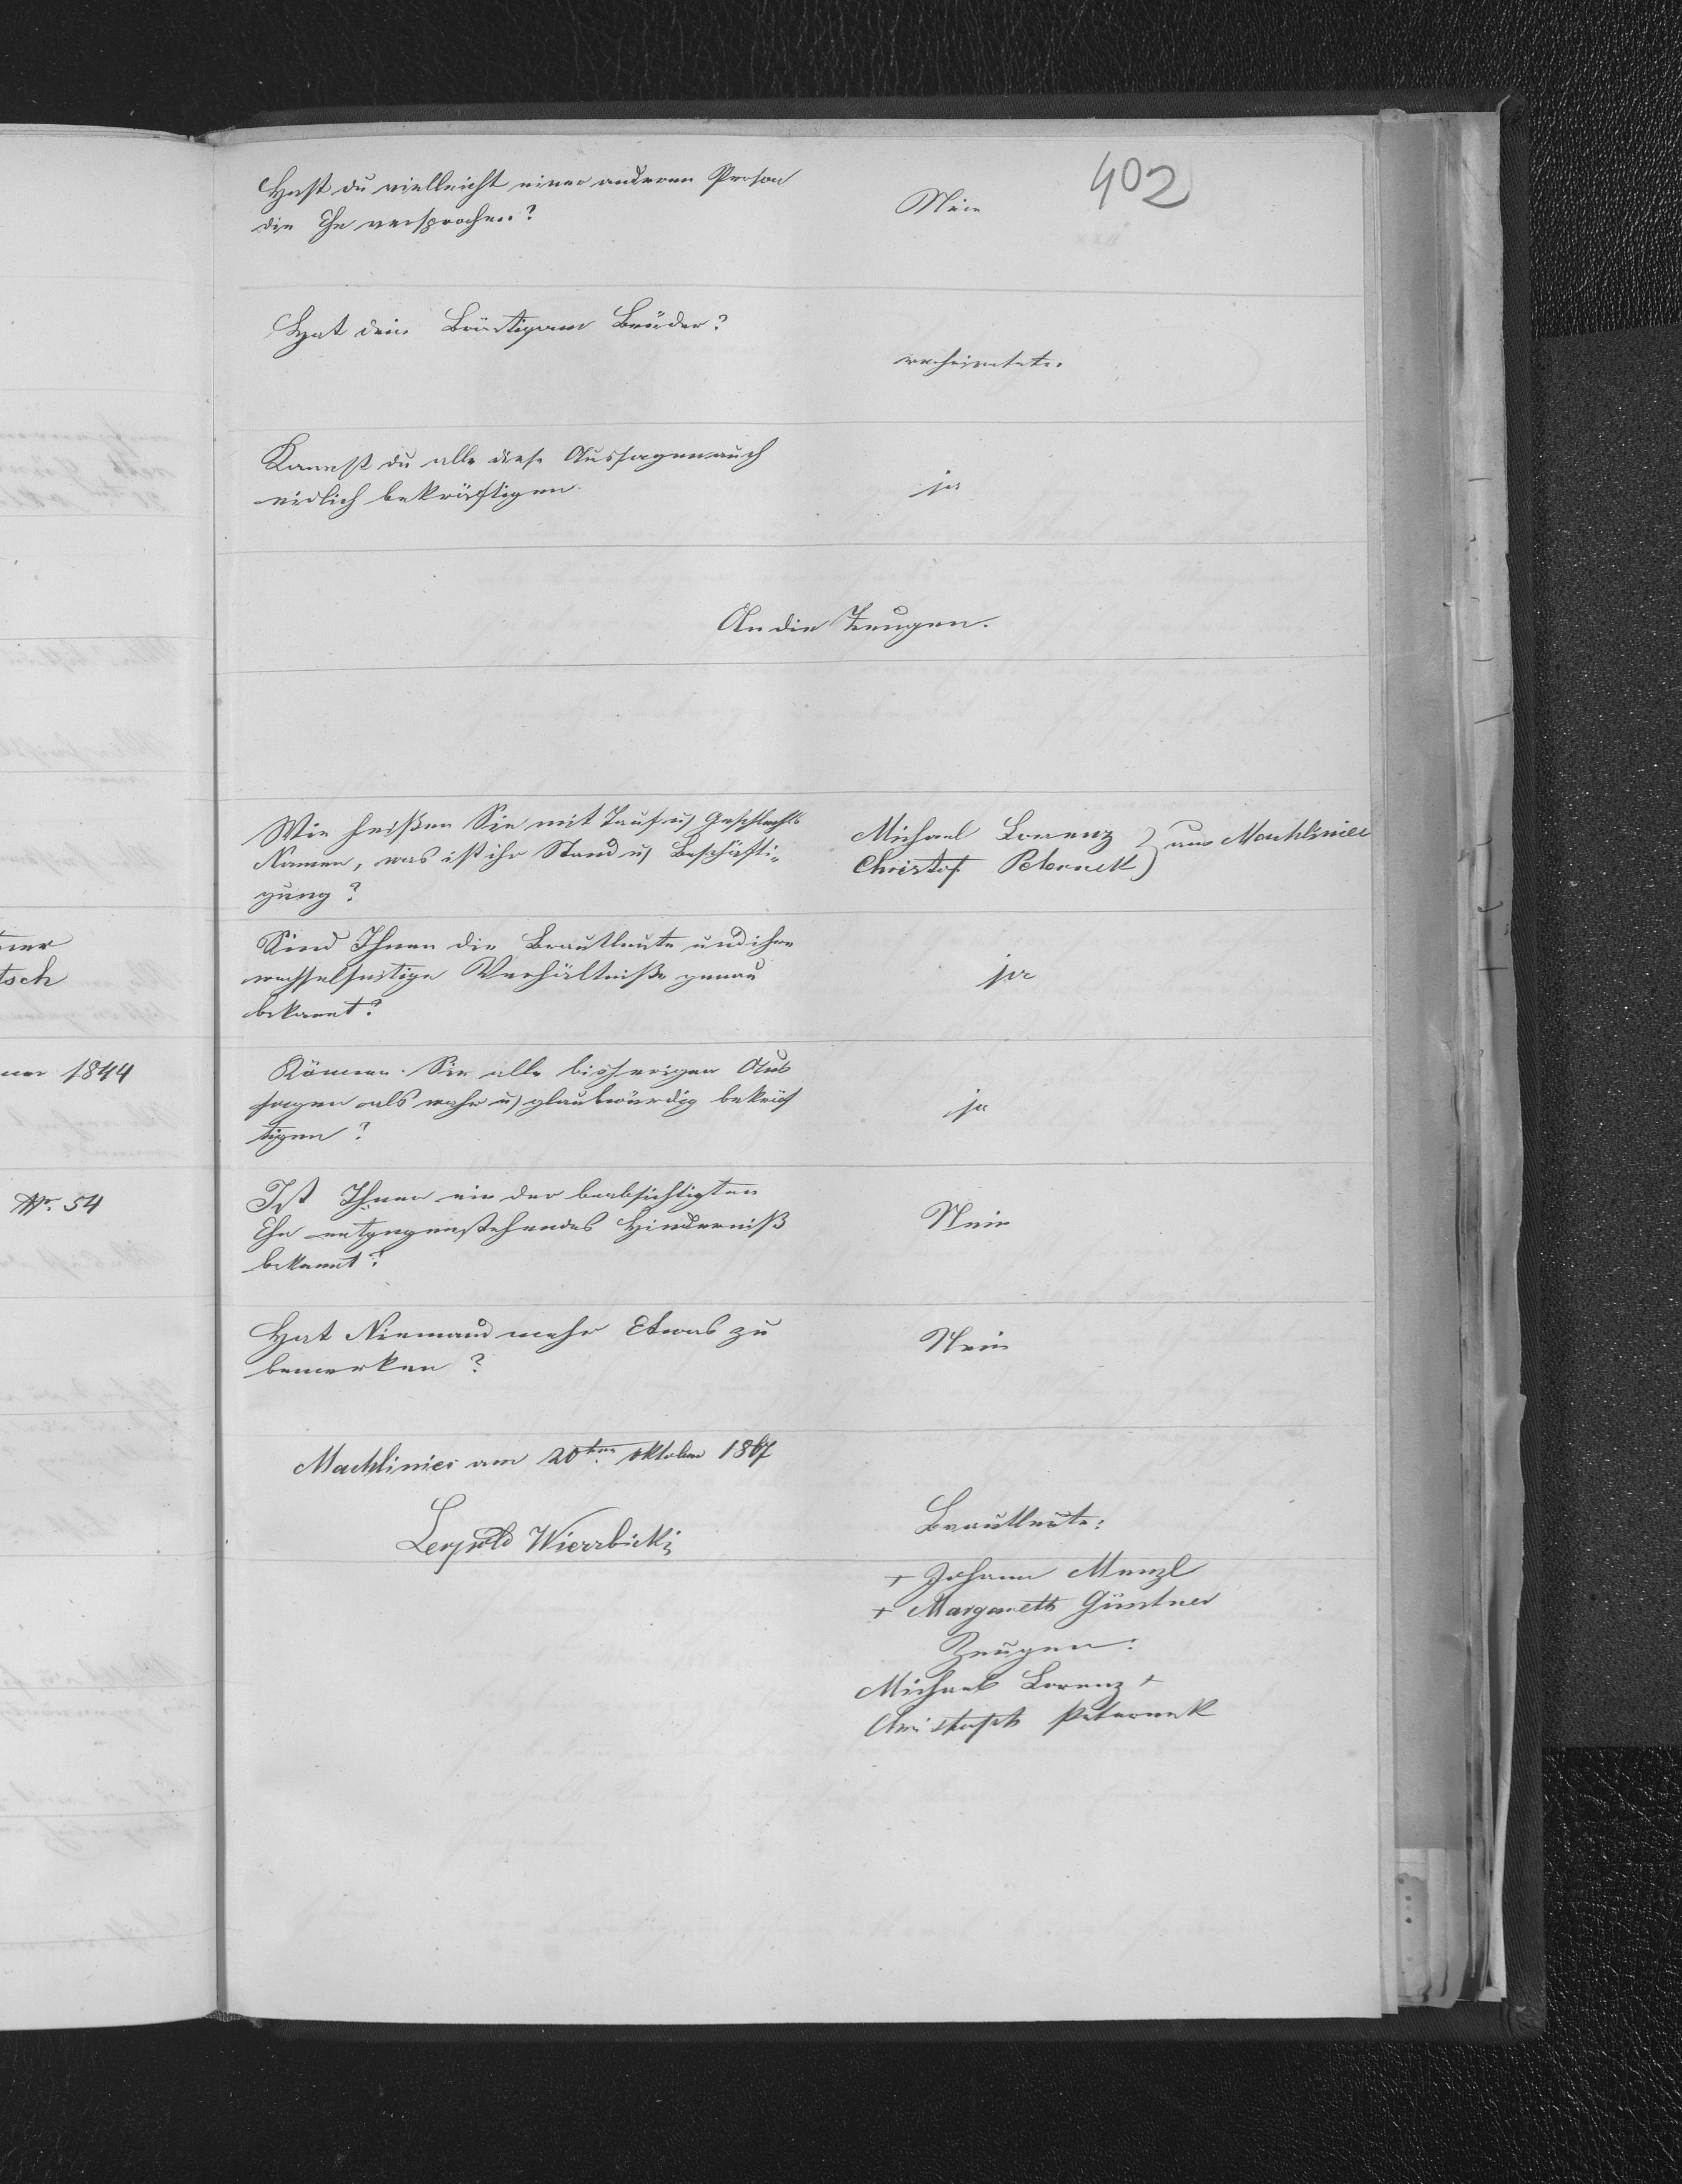 402
Hast du vielleicht einer anderen Person
die Ehe versprochen?
Nein
Hat dein Bräutigam Brüder?
verheiratete.
Kannst du alle diese Aussagen auch
eidlich bekräftigen.
ja
An die Zeugen.
Wie heißen Sie mit Tauf u) Geschlechts
Namen, was ist ihr Stand u) Beschäfti„
gung?
Michael Lorenz
Christof Petronek
) aus Machliniec
Sind Ihnen die Brautleute und ihre
wechselseitige Verhältniße genau
bekannt?
ja
Können Sie alle bisherigen Aus
sagen als wahr u) glaubwürdig bekräf
tigen?
ja
Ist Ihnen ein der beabsichtigten
Ehe entgegenstehendes Hinderniß
bekannt?
Nein
Hat Niemand mehr Etwas zu
bemerken?
Nein
Machliniec am 20ten Oktober 1867
Leopold Wierzbicki
Brautleute:
+ Johann Menzl
+ Margareth Güntner
Zeugen:
Michael Lorenz +
Christoph Petronek
tsch
1844
Nr. 54